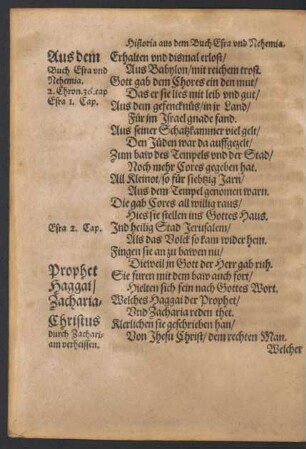 Historia aus dem Buch Esra vnd Nehemia.
Aus dem
Buch Esra vnd
Nehemia.
2. Chron. 36. cap
Esra 1. Cap.
Erhalten vnd dismal erlost/
Aus Babylon/mit reichem trost.
Gott gab dem Chores ein den mut/
Das er sie lies mit leib vnd gut/
Aus dem gefencknüs/in jr Land/
Für im Jsrael gnade fand.
Aus seiner Schatzkammer viel gelt/
Den Jüden war da auffgezelt/
Zum baw des Tempels vnd der Stad/
Noch mehr Cores gegeben hat.
All Kleinot/so für siebtzig Jarn/
Aus dem Tempel genomen warn.
Die gab Cores all willig raus/
Hies sie stellen ins Gottes Haus.
Esra 2. Cap.
Ind heilig Stad Jerusalem/
Als das Volck so kam wider hem.
Fingen sie an zu bawen nu/
Dieweil in Gott der Herr gab ruh.
Prophet
Haggai/
Zacharia.
Christus
durch Zachari-
am verheissen.
Sie furen mit dem baw auch fort/
Hielten sich sein nach Gottes Wort.
Welches Haggai der Prophet/
Vnd Zacharia reden thet.
Klerlichen sie geschrieben han/
Von Jhesu Christ/dem rechten Man.
Welcher